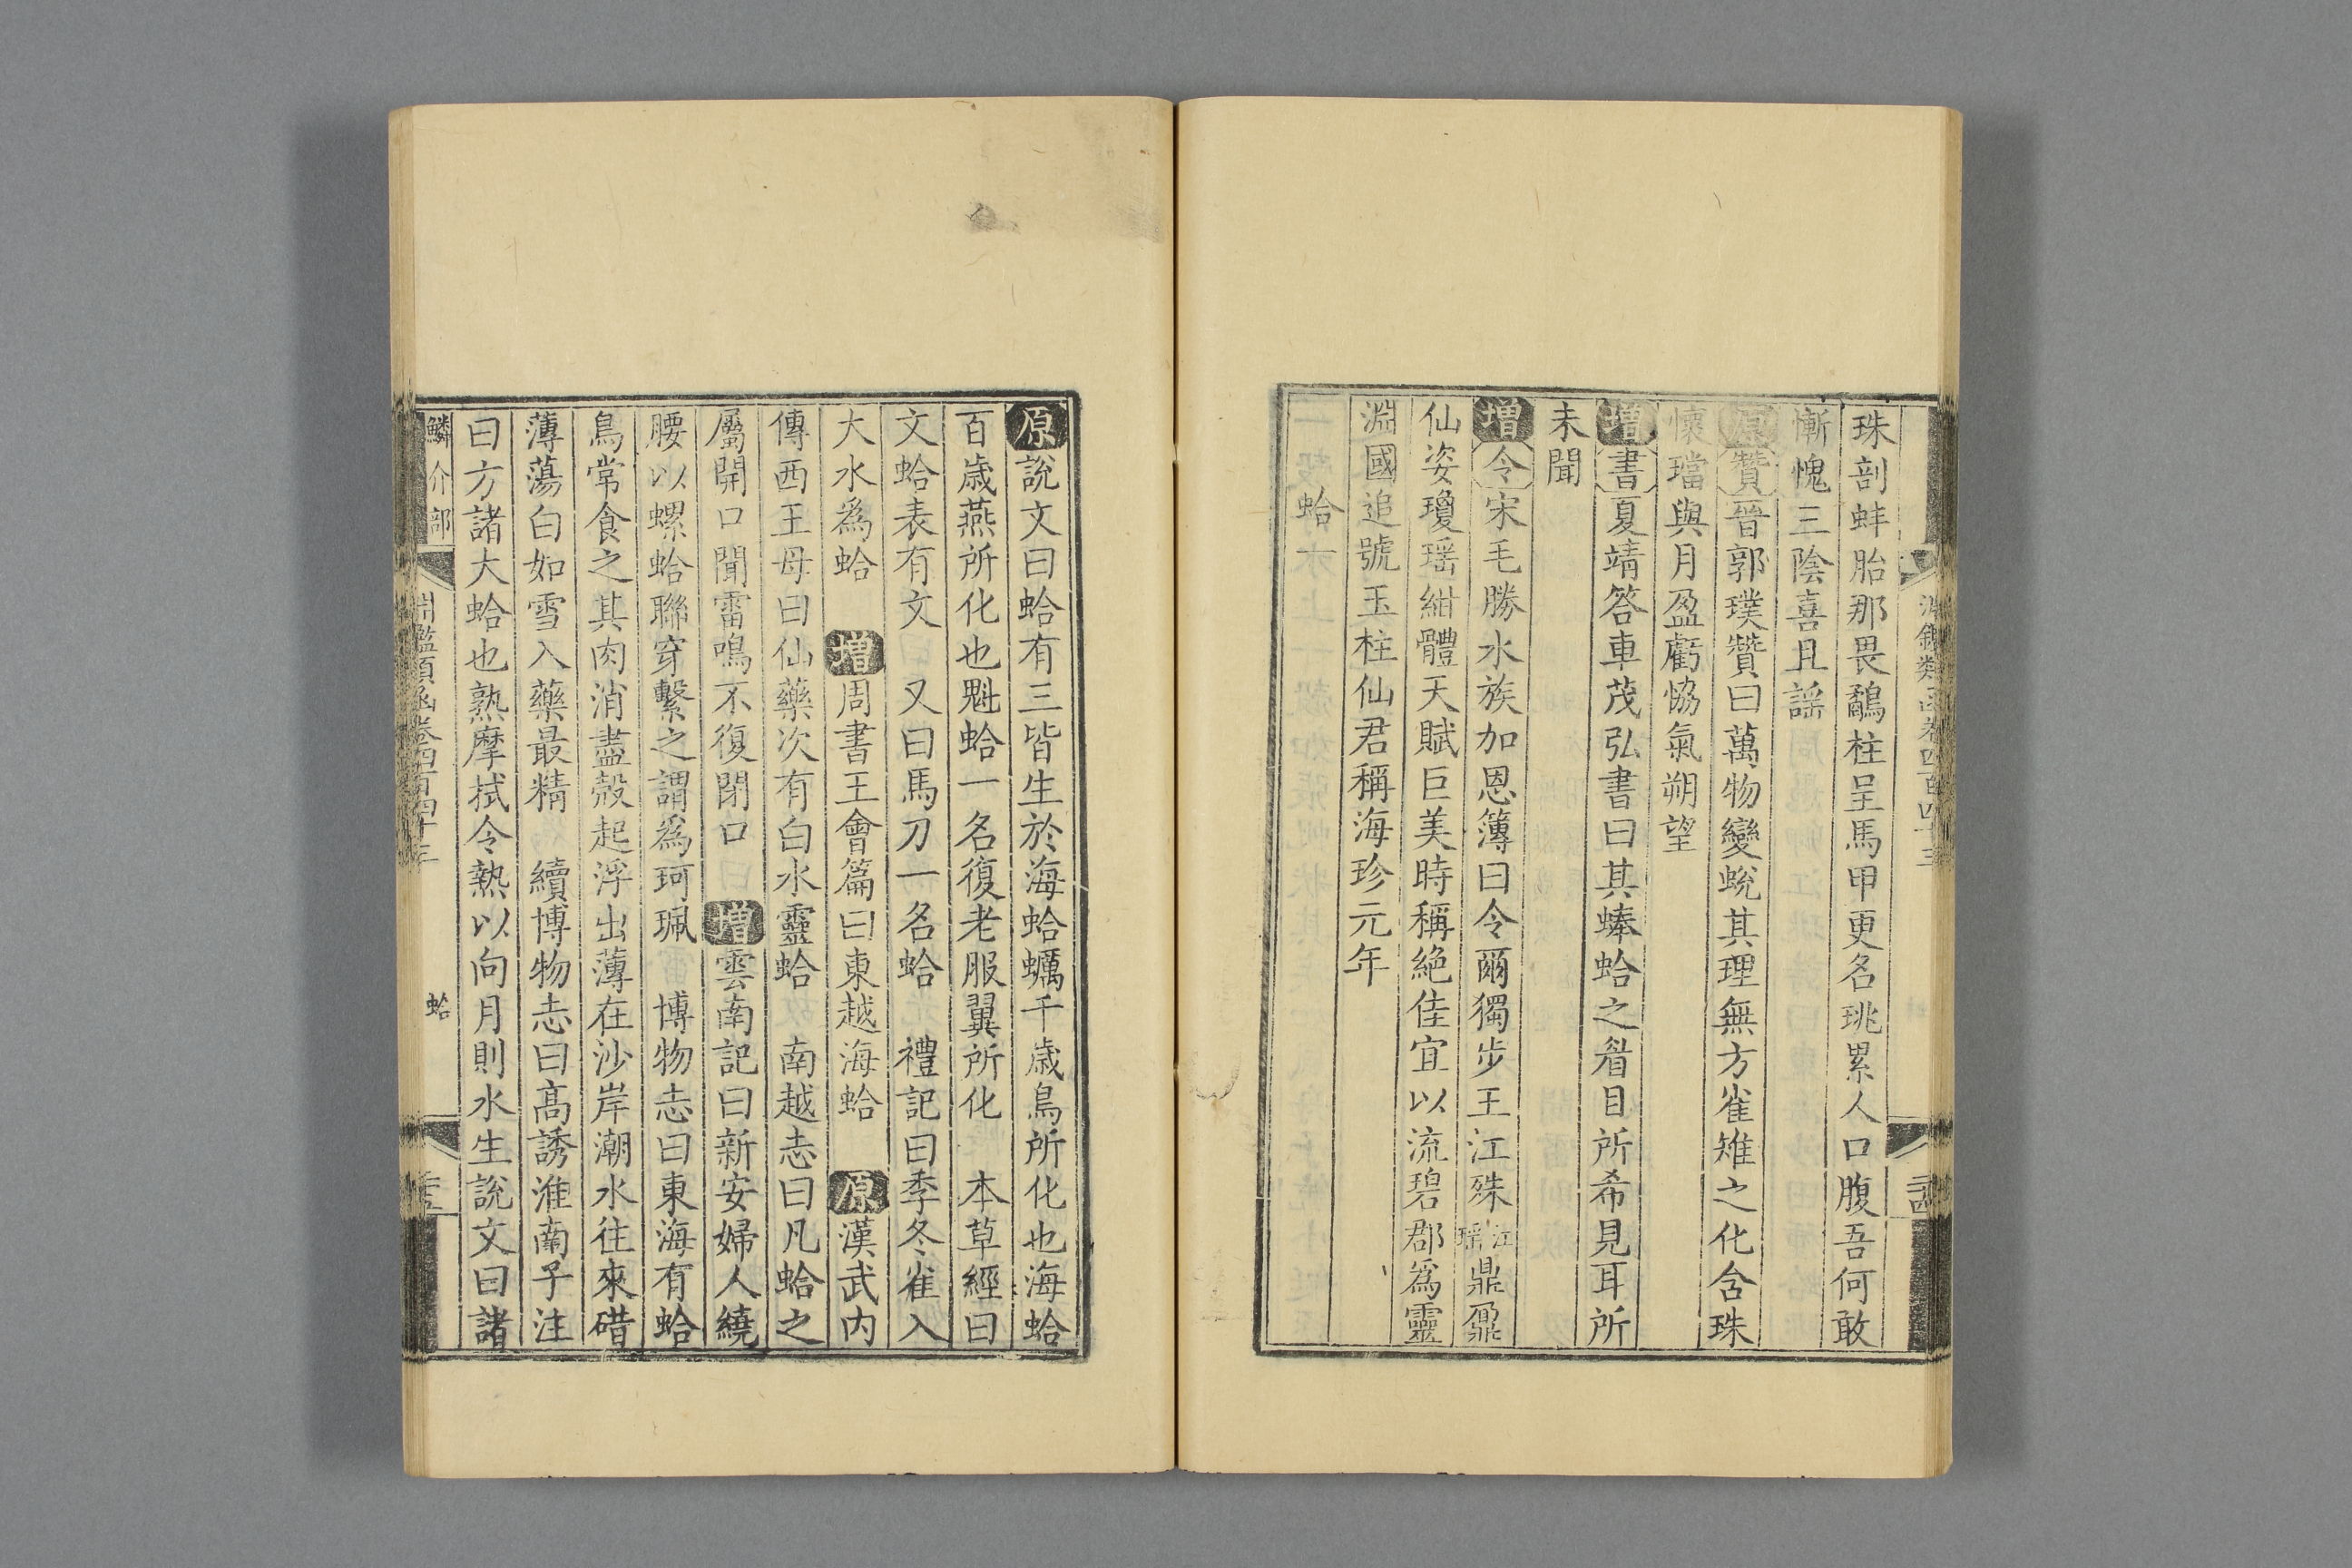 珠剖蚌胎那畏鷸柱呈馬甲更名珧累人口腹吾何敢
慚愧三陰喜且謡
原贊晉郭璞贊曰萬物變蛻其理無方雀雉之化含珠
懷璫與月盈虧恊氣朔望
增書夏靖答車茂弘書曰其蜯蛤之眥目所希見耳所
未聞
增令宋毛勝水族加恩簿曰令爾獨步王江殊江瑶鼎鼐
仙姿瓊瑶紺體天賦巨美時稱絶佳宜以流碧郡爲靈
淵國追號玉柱仙君稱海珍元年
蛤
原說文曰蛤有三皆生於海蛤蠣千歲鳥所化也海蛤
百歲燕所化也魁蛤一名復老服翼所化 本草經曰
文蛤表有文 又曰馬刀一名蛤 禮記曰季冬雀入
大水爲蛤 增周書王會篇曰東越海蛤 原漢武内
傳西王母曰仙藥次有白水靈蛤 南越志曰凡蛤之
屬開口聞雷鳴不復閉口 增雲南記曰新安婦人繞
腰以螺蛤聯穿繫之謂爲珂珮 博物志曰東海有蛤
鳥常食之其肉消盡殼起浮出薄在沙岸潮水往來碏
薄蕩白如雪入藥最精 續博物志曰高誘淮南子注
曰方諸大蛤也熟摩拭令熱以向月則水生說文曰諸
鱗介部
淵鑑類函卷四百四十三
蛤